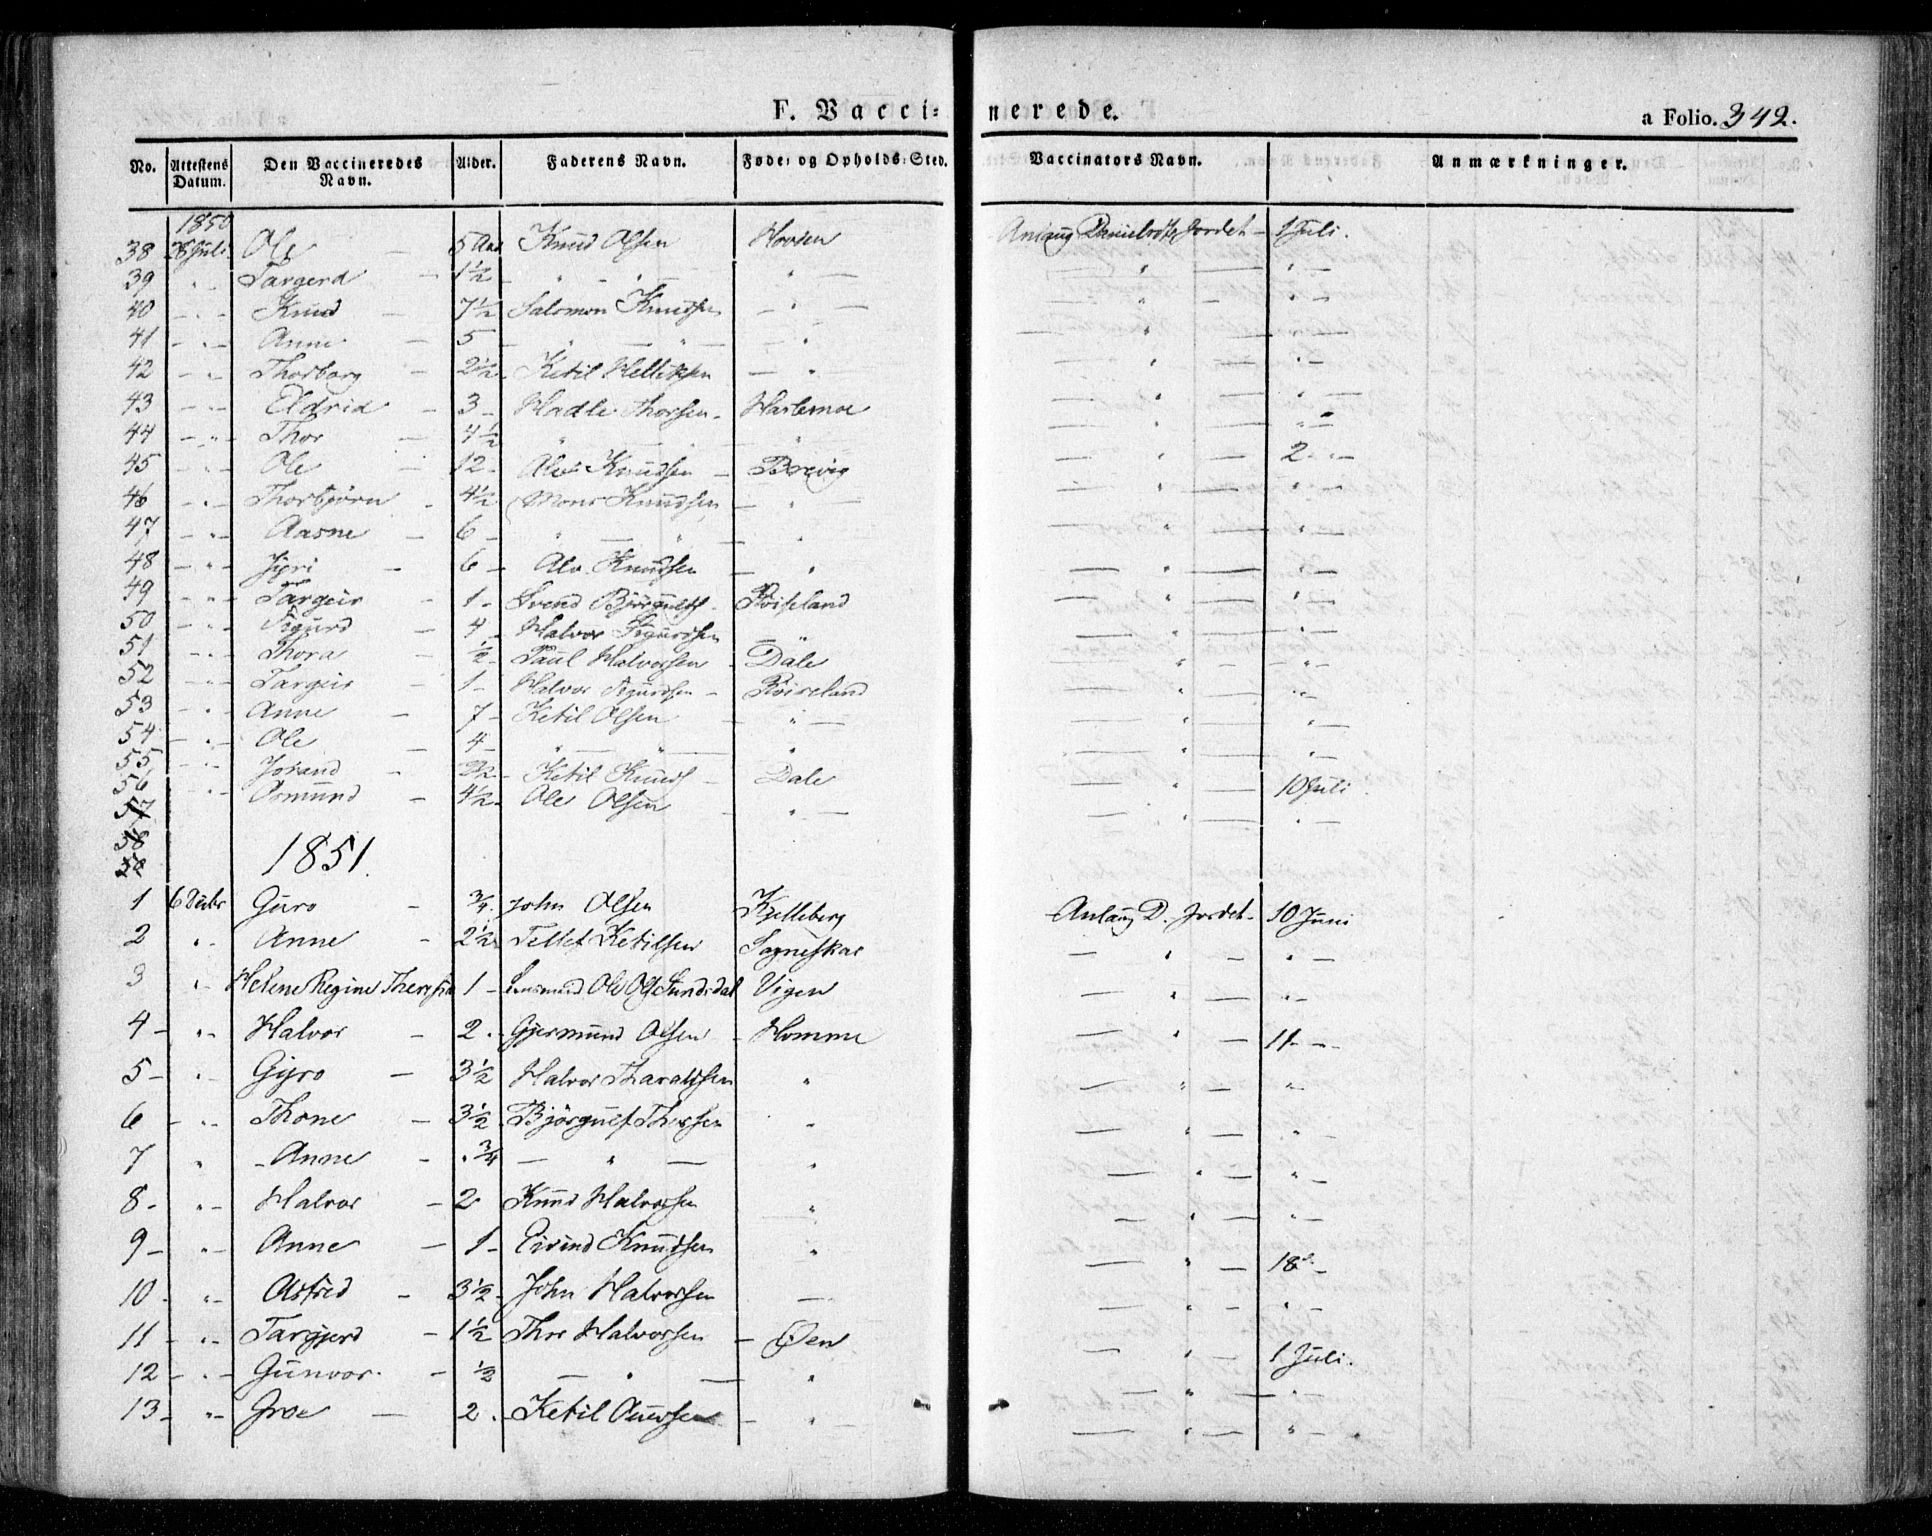 F. Vaccinerede.
a Folio. 342.
No. Attestens Datum. Den Vaccineredes Navn. Alder. Faderens Navn. Føde- og Opholds-Sted. Vaccinators Navn. Anmærkninger.
1850
38 28 Juli. Ole — 5 Aar Knud Olsen Hovden Anlaug Jordet — 1 Juli.
39 " Targerd — 1½ " " " "
40 " Knud — 7½ Salomon Knudsen — " " "
41 " Anne — 5 " " " "
42 " Thorborg — 2½ Ketil — " " "
43 " Eldrid — 3 Hadle Thorsen " "
44 " Thor — 4½ " " " "
45 " Ole — 12 Knudsen — Brevig " 2 "
46 " Thorbjørn — 4½ Mons Knudsen — " " "
47 " Aasne — 6 " " " "
48 " — 6 Alv Knudsen — " " "
49 " Targeir — 1 Svend Røiseland " "
50 " Sigurd — 4 Halvor Sigurdsen " " "
51 " Thora — ½ Paul Halvorsen Dale " "
52 " Targeir — 1 Halvor Sigurdsen — Røiseland " "
53 " Anne — 7 Ketil Olsen — " " "
54 " Ole — 4 " " " "
55 " Jorand — Ketil Knuds — Dale " 10 Juli.
56 " Osmund — 4½ Ole Olsen — " " "
57
58
1851.
1 6 Guro — ¾ John Olsen Kjelleberg Anlaug D. Jordet 10 Juni
2 " Anne — 2½ Tellef Ketilsen " "
3 " Helene Regine Theresia 1 — Ole Vigen " "
4 — " Halvor — 2 Gjermund Olsen — Homme " 11 "
5 — " Gyro — 3½ Halvor Tharaldsen " " "
6 " Thone — 3½ Bjørgulf Thorsen " " "
7 " Anne — ¾ — " — " " "
8 — " Halvor — 2 Knud Halvorsen " " "
9 — " Anne — 1 — Eivind Knudsen " " 18 "
10 " Astrid — 3½ John Halvorsen — " "
11 — " Targjerd — 1½ Thor Halvorsen — Øen " 1 Juli.
12 — " Gunvor — ½ — " — " " "
13 — " Groe — 2 Ketil — " " "